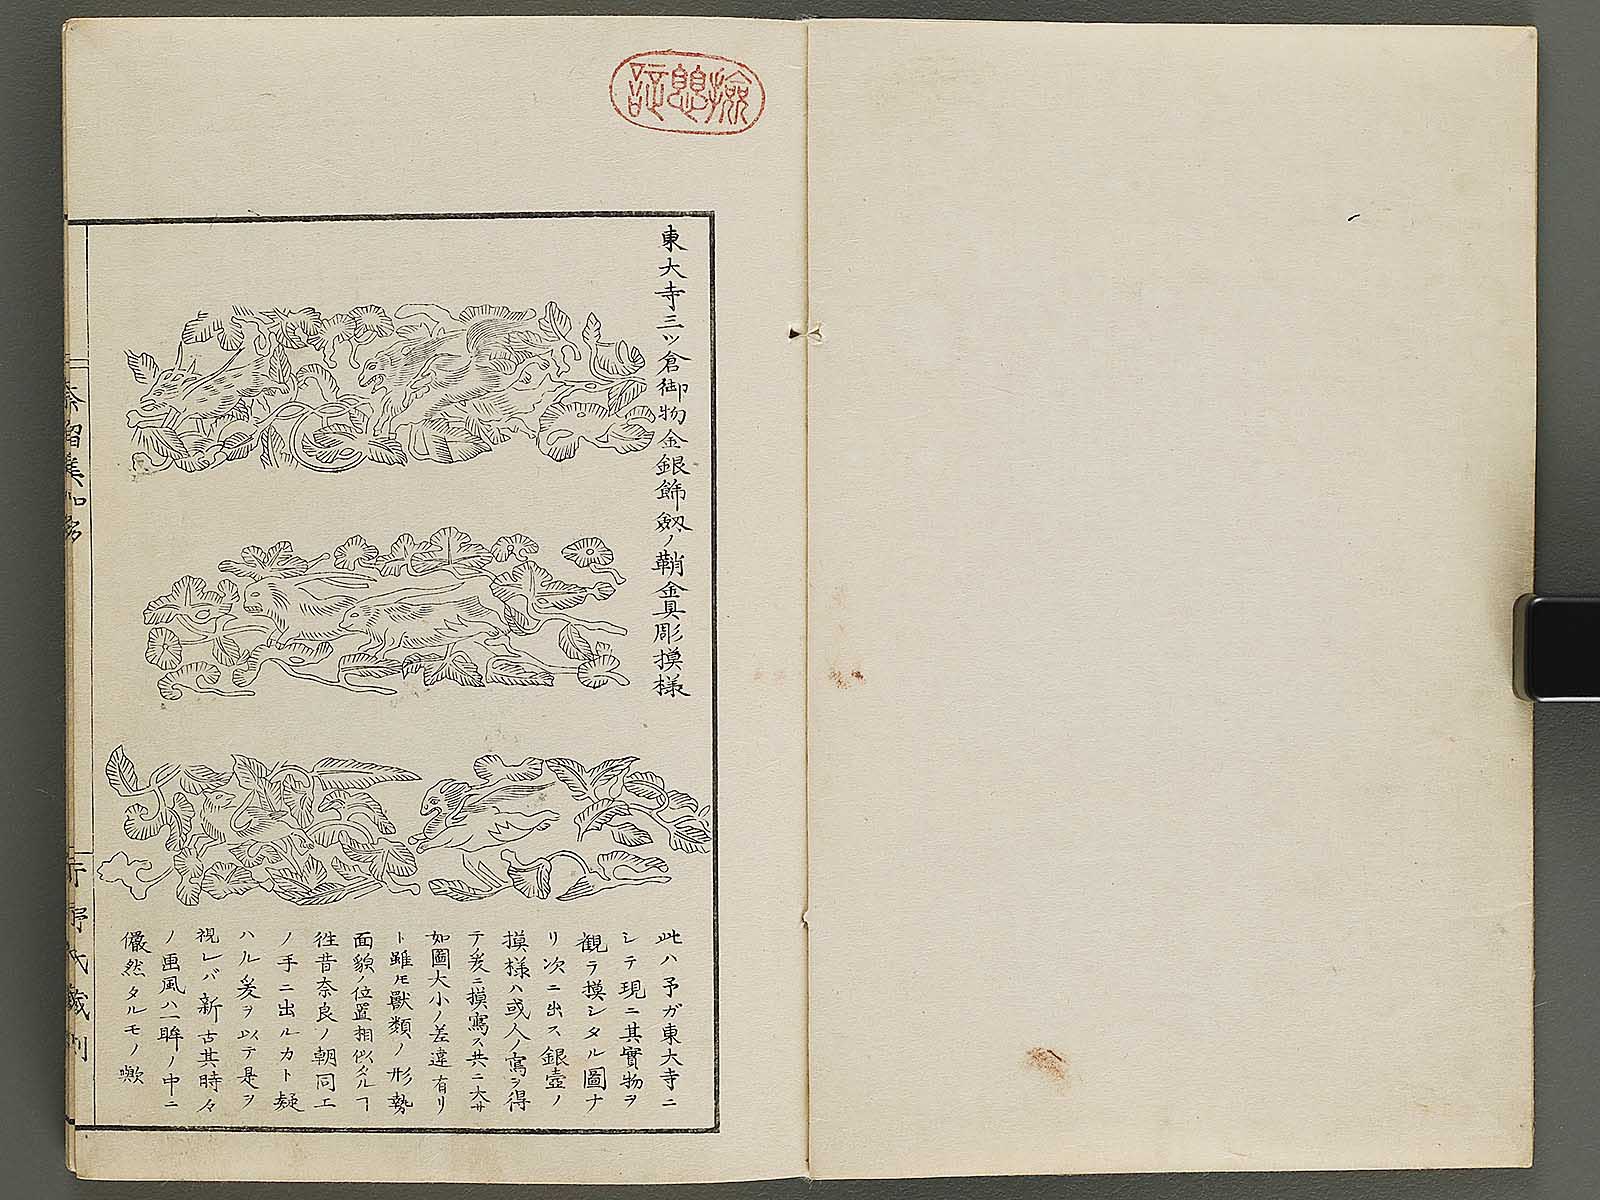 東大寺三ッ倉御物金銀飾劔ノ鞘金具彫摸様
此ハ予ガ東大寺ニ
シテ現ニ其實物ヲ
観ラ摸シタル圖ナ
リ次ニ出ス銀壺ノ
摸様ハ或人ノ寫ヲ得
テ爰ニ摸寫ス共ニ大サ
如圖大小ノ差違有リ
ト雖𪜈獸類ノ形勢
面貌ノ位置相似タルヿ
徃昔奈良ノ朝同工
ノ手ニ出ルカト疑
ハル爰ヲ以テ是ヲ
視レバ新古其時々
ノ画風ハ一眸ノ中ニ
儼然タルモノ歟